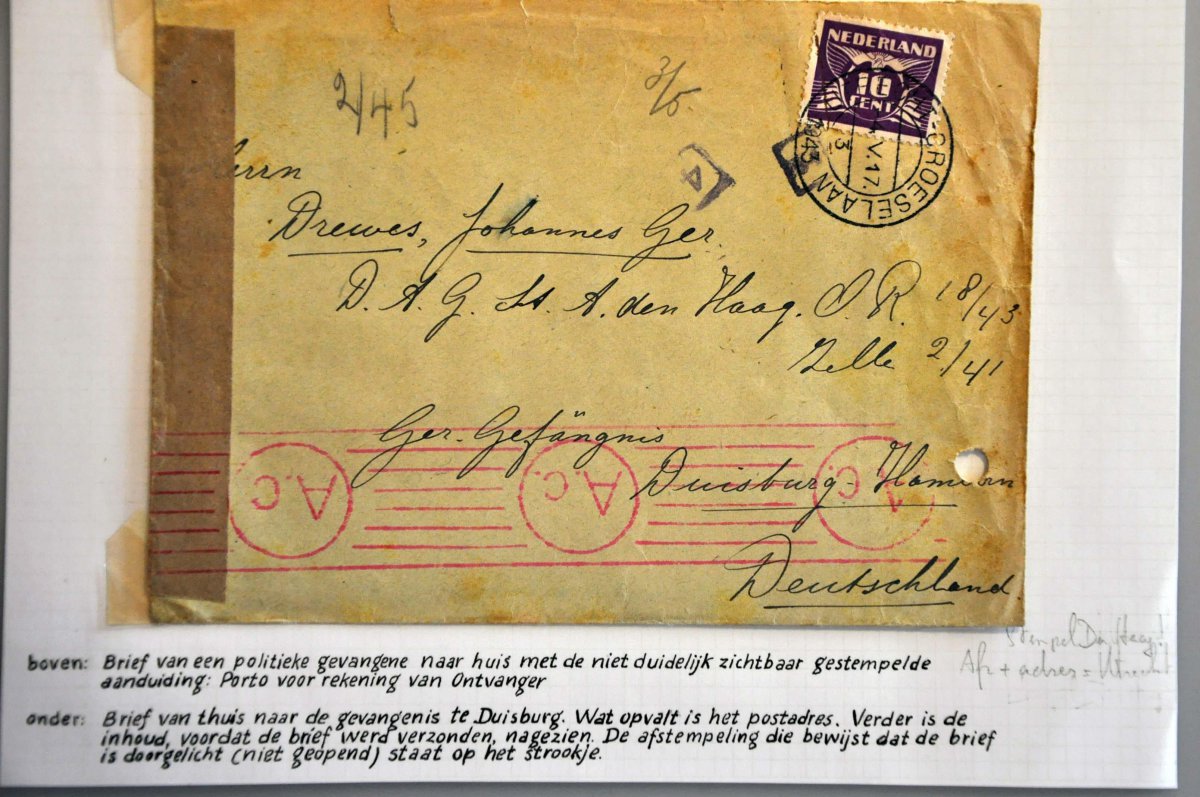 2/45
3/5.
NEDERLAND
10
CENT
CROESELAAN
V.17.
1943
4
Herrn
Drewes, Johannes Ger.
D. A. G. St. A. den Haag. O. R. 18/43
Zelle 2/41
Ger. Gefängnis
Duisburg-Hamborn
Deutschland
A.c A.c A.c
boven: Brief van een politieke gevangene naar huis met de niet duidelijk zichtbaar gestempelde
aanduiding: Porto voor rekening van Ontvanger
onder: Brief van thuis naar de gevangenis te Duisburg. Wat opvalt is het postadres. Verder is de
inhoud, voordat de brief werd verzonden, nagezien. De afstempeling die bewijst dat de brief
is doorgelicht (niet geöpend) staat op het strookje.
Stempel Den Haag!
Afz + adres = Utrecht